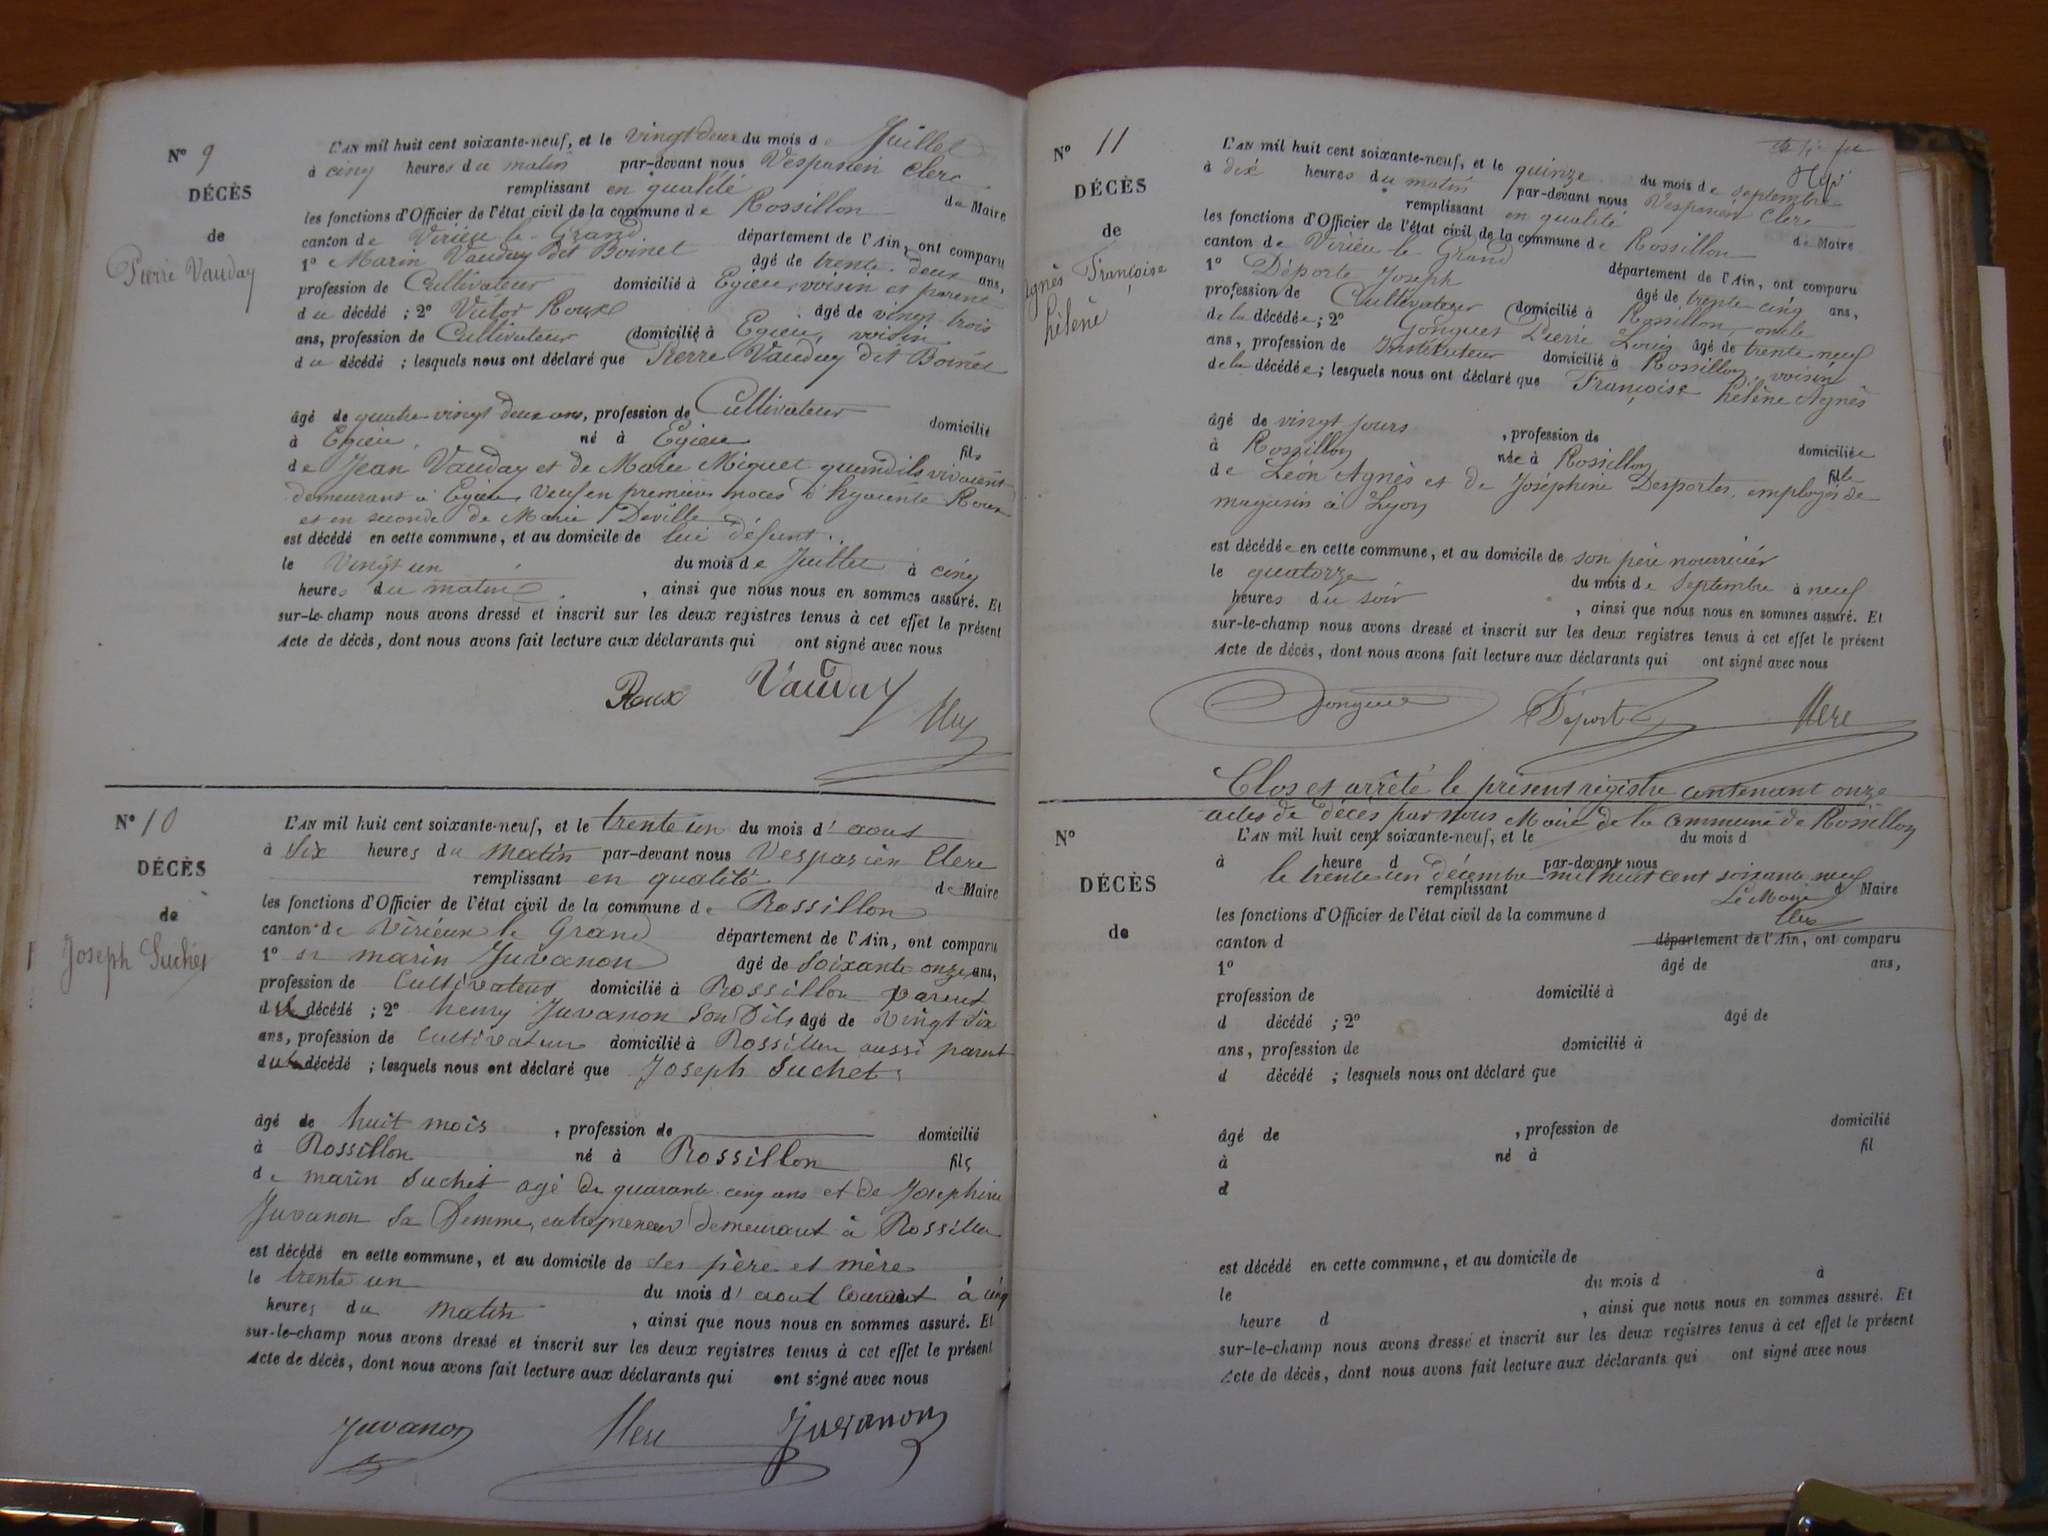 N° 9
DÉCÈS
de
Pierre Vauday
L'AN mil huit cent soixante-neuf, et le vingt deux du mois de Juillet
à cinq heures du matin par-devant nous Vespasien Clerc
remplissant en qualité de Maire
les fonctions d'Officier de l'état civil de la commune de Rossillon
canton de Virieu le Grand département de l'Ain, ont comparu
1° Marin Vauday dit Boinet âgé de trente-deux ans,
profession de Cultivateur domicilié à Egieu, voisin et parent
du décédé ; 2° Victor Roux âgé de vingt trois
ans, profession de Cultivateur domicilié à Egieu, voisin
du décédé ; lesquels nous ont déclaré que Pierre Vauday dit Boinet
âgé de quatre vingt deux ans, profession de Cultivateur domicilié
à Egieu, né à Egieu fils
de Jean Vauday et de Marie Miguet quand ils vivaient
demeurant à Egieu, Veuf en premières noces d'hyacinte Roux
et en seconde de Marie Deville
est décédé en cette commune, et au domicile de lui défunt.
le Vingt un du mois de Juillet à cinq
heures du matin , ainsi que nous nous en sommes assuré. Et
sur-le-champ nous avons dressé et inscrit sur les deux registres tenus à cet effet le présent
Acte de décès, dont nous avons fait lecture aux déclarants qui ont signé avec nous
Roux Vauday Clerc
N° 10
DÉCÈS
de
Joseph Suchet
L'AN mil huit cent soixante-neuf, et le trente un du mois d'aout
à Six heures du matin par-devant nous Vespasien Clerc
remplissant en qualité de Maire
les fonctions d'Officier de l'état civil de la commune de Rossillon
canton de Virieux le Grand département de l'Ain, ont comparu
1° sr marin Juvanon âgé de soixante onze ans,
profession de Cultivateur domicilié à Rossillon parent
du décédé ; 2° henry Juvanon Son Fils âgé de vingt six
ans, profession de Cultivateur domicilié à Rossillon aussi parent
du décédé ; lesquels nous ont déclaré que Joseph Suchet
âgé de huit mois , profession de domicilié
à Rossillon né à Rossillon fils
de marin Suchet agé de quarante cinq ans et de Josephine
Juvanon Sa Femme, entrepreneur demeurant à Rossillon
est décédé en cette commune, et au domicile de ses père et mère
le trente un du mois d'aout Courant à cinq
heures du matin , ainsi que nous nous en sommes assuré. Et
sur-le-champ nous avons dressé et inscrit sur les deux registres tenus à cet effet le présent
Acte de décès, dont nous avons fait lecture aux déclarants qui ont signé avec nous
Juvanon Clerc Juvanon
N° 11
DÉCÈS
de
Agnès Françoise
hélène
L'AN mil huit cent soixante-neuf, et le quinze du mois de septembre
à dix heures du matin par-devant nous Vespasien Clerc
remplissant en qualité de Maire
les fonctions d'Officier de l'état civil de la commune de Rossillon
canton de Virieu le Grand département de l'Ain, ont comparu
1° Déporte Joseph âgé de trente cinq ans,
profession de Cultivateur domicilié à Rossillon, oncle
de la décédée ; 2° Gonguet Pierre Louis âgé de trente neuf
ans, profession de Instituteur domicilié à Rossillon, voisin
de la décédée ; lesquels nous ont déclaré que Françoise hélène Agnès
âgé de vingt jours , profession de domiciliée
à Rossillon née à Rossillon fille
de Léon Agnès et de Joséphine Desportes, employés de
magasin à Lyon
est décédée en cette commune, et au domicile de son père nourricier
le quatorze du mois de Septembre à neuf
heures du soir , ainsi que nous nous en sommes assuré. Et
sur-le-champ nous avons dressé et inscrit sur les deux registres tenus à cet effet le présent
Acte de décès, dont nous avons fait lecture aux déclarants qui ont signé avec nous
Gonguet Déporte Clerc
Clos et arrêté le présent registre contenant onze
actes de décès par nous Maire de la Commune de Rossillon
le trente un décembre mil huit cent soixante neuf
Le Maire
Clerc
N°
DÉCÈS
de
L'AN mil huit cent soixante-neuf, et le du mois d
à heure d par-devant nous
remplissant d Maire
les fonctions d'Officier de l'état civil de la commune d
canton d département de l'Ain, ont comparu
1° âgé de ans,
profession de domicilié à
d décédé ; 2° âgé de
ans, profession de domicilié à
d décédé ; lesquels nous ont déclaré que
âgé de , profession de domicilié
à né à fil
d
est décédé en cette commune, et au domicile de
le du mois d à
heure d , ainsi que nous nous en sommes assuré. Et
sur-le-champ nous avons dressé et inscrit sur les deux registres tenus à cet effet le présent
Acte de décès, dont nous avons fait lecture aux déclarants qui ont signé avec nous